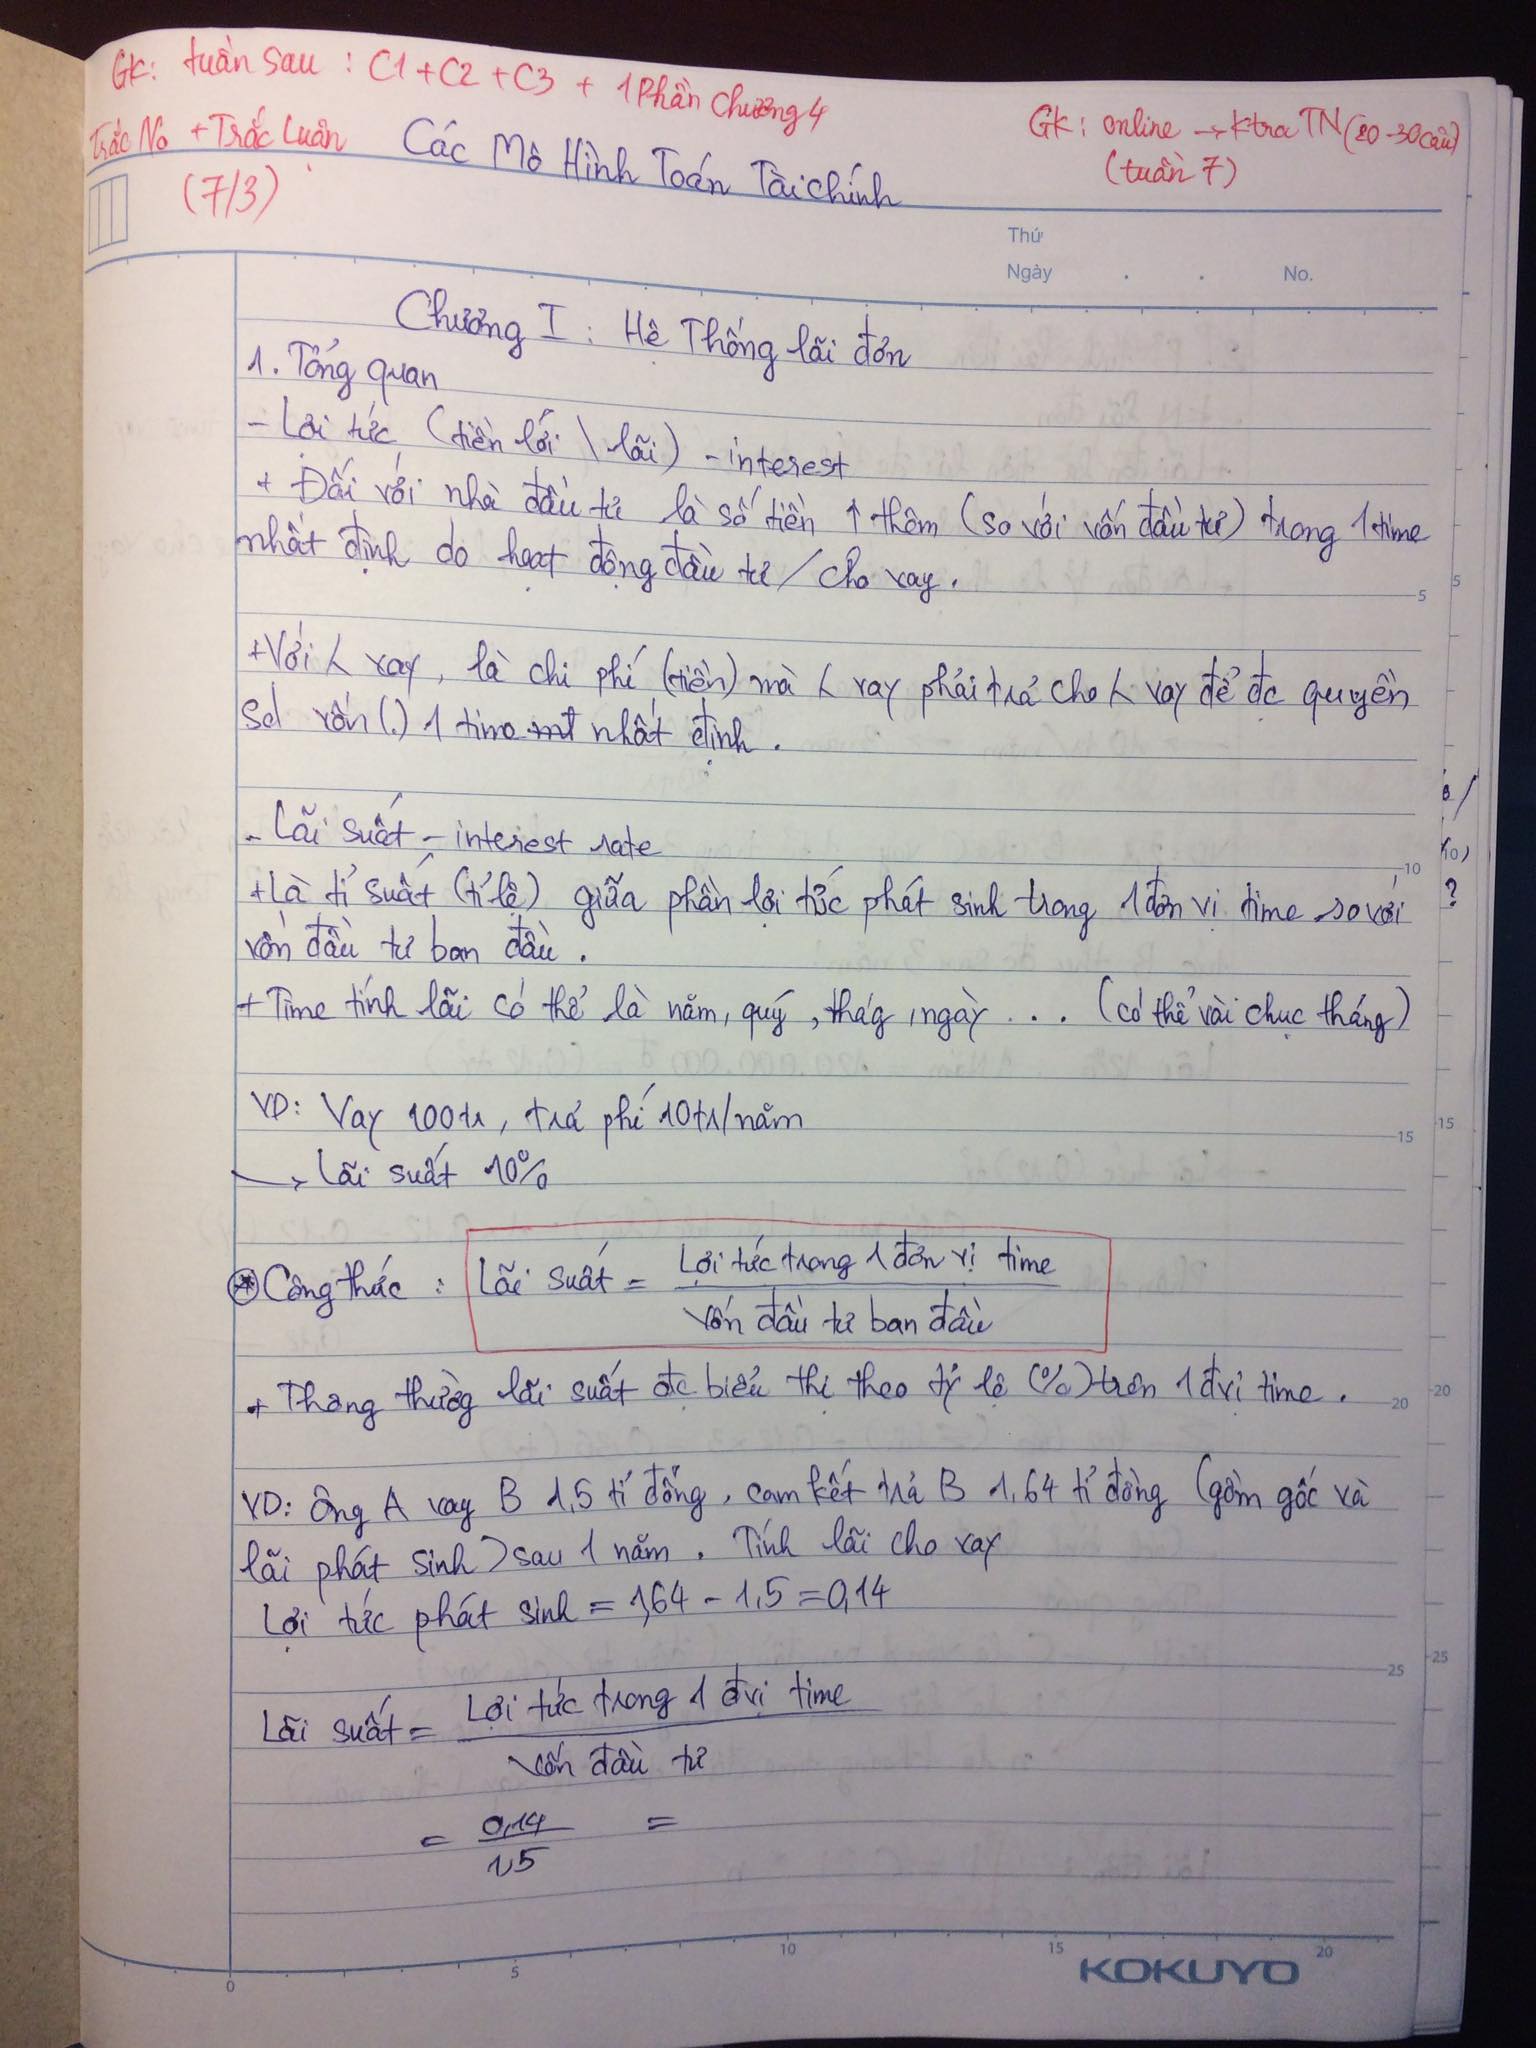 GK: tuần sau : C1 + C2 + C3 + 1 Phần Chương 4
Trắc No + Trắc Luận
(7/3)
GK: online → Ktra TN (20-30 câu)
(tuần 7)
Các Mô Hình Toán Tài chính
Thứ
Ngày . . No.
Chương I : Hệ Thống lãi đơn
1. Tổng quan
- Lợi tức (tiền lới \ lãi) - interest
+ Đối với nhà đầu tư là số tiền ↑ thêm (so với vốn đầu tư) trong 1 time
nhất định do hoạt động đầu tư / cho vay.
5
+ Với < vay, là chi phí (tiền) mà < vay phải trả cho < vay để đc quyền
sd vốn (.) 1 time nhất định.
- Lãi suất - interest rate
10
+ Là tỉ suất (tỉ lệ) giữa phần lợi tức phát sinh trong 1 đơn vị time so với
vốn đầu tư ban đầu.
+ Time tính lãi có thể là năm, quý, thág, ngày . . . (có thể vài chục tháng)
VD: Vay 100tr, trả phí 10tr/năm
15
→ Lãi suất 10%
* Công thức : Lãi suất = Lợi tức trong 1 đơn vị time
vốn đầu tư ban đầu
+ Thông thường lãi suất đc biểu thị theo tỷ lệ (%) trên 1 đvị time.
20
VD: Ông A vay B 1,5 tỉ đồng, cam kết trả B 1,64 tỉ đồng (gồm gốc và
lãi phát sinh) sau 1 năm. Tính lãi cho vay
Lợi tức phát sinh = 1,64 - 1,5 = 0,14
25
Lãi suất = Lợi tức trong 1 đvị time
vốn đầu tư
= 0,14 =
1,5
0 5 10 15 20
KOKUYO